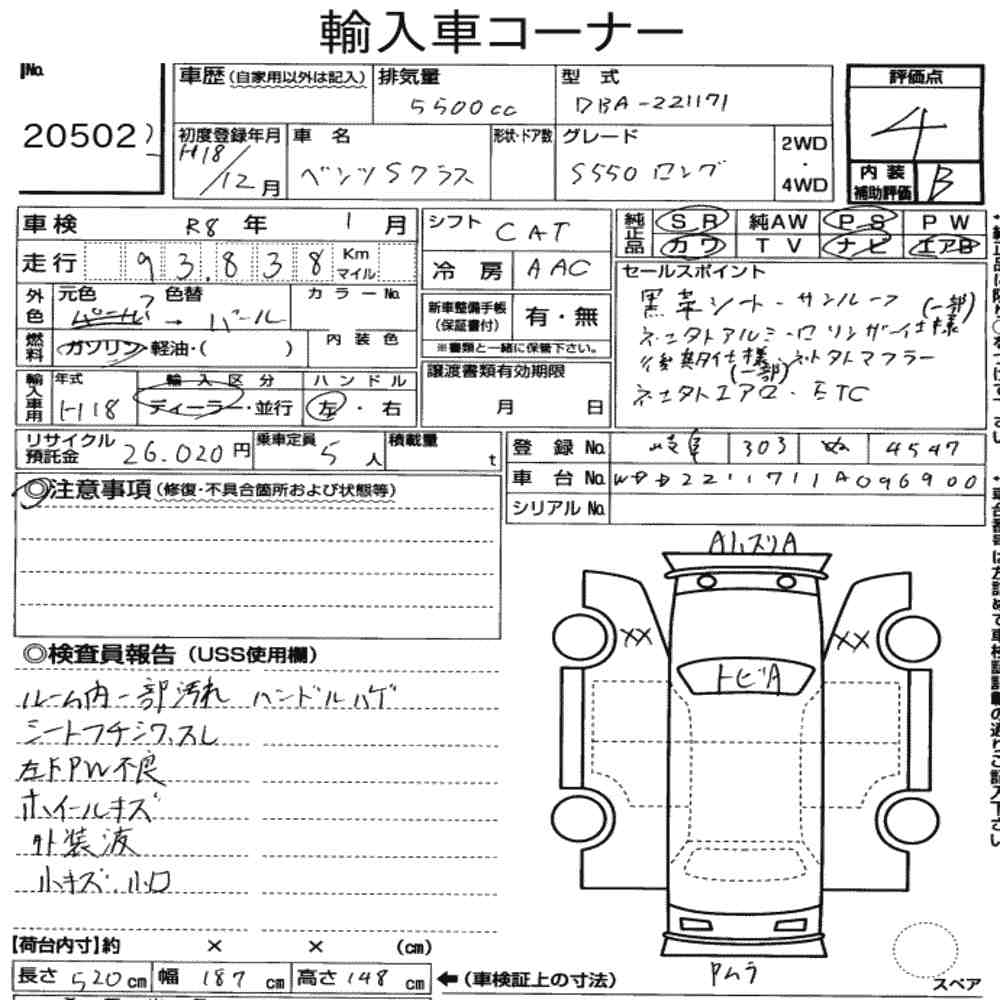 輸入車コーナー
No. 車歴 (自家用以外は記入) 排気量 型式 評価点
20502 5500cc DBA-221171 4
初度登録年月 車名 形状・ドア数 グレード 2WD・4WD
H18/12月 ベンツSクラス S550 ロング 内装補助評価 B
車検 R8年 1月 シフト CAT 純正品 SR 純AW PS PW
走行 93,838 Km マイル 冷房 AAC カワ TV ナビ エアB
外色 元色 色替 カラーNo. 新車整備手帳(保証書付) 有・無 セールスポイント
パール → パール ※書類と一緒に保管下さい。 黒革シート・サンルーフ (一部)
燃料 ガソリン・軽油・( ) 内装色 譲渡書類有効期限 ロリンザー仕様
輸入車用 年式 輸入区分 ハンドル 月 日 後期仕様 マフラー
(一部)
H18 ディーラー・並行 左・右 エアロ・ETC
リサイクル預託金 26.020円 乗車定員 5人 積載量 t 登録No. 岐阜 303 ぬ 4547
車台No. WDD2211711A096900
◎注意事項 (修復・不具合箇所および状態等) シリアルNo.
A小スリA
XX XX
トビA
◎検査員報告 (USS使用欄)
ルーム内一部汚れ ハンドルハゲ
シートフチシワ、スレ
左FPW不良
ホイールキズ
外装液
小キズ 小凹
【荷台内寸】約 × × (cm)
長さ 520cm 幅 187cm 高さ 148cm ←(車検証上の寸法)
Pムラ
スペア